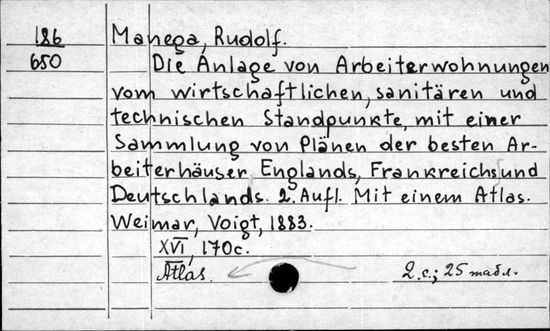 186
650
Manega, Rudolf.
Die Anlage von Arbeiterwohnungen
vom wirtschaftlichen, sanitären und
technischen Standpunkte, mit einer
Sammlung von Plänen der besten Ar-
beiterhäuser Englands, Frankreichs und
Deutschlands. 2. Aufl. Mit einem Atlas.
Weimar, Voigt, 1883.
XVI, 170с.
Atlas. 2 с.; 25 табл.